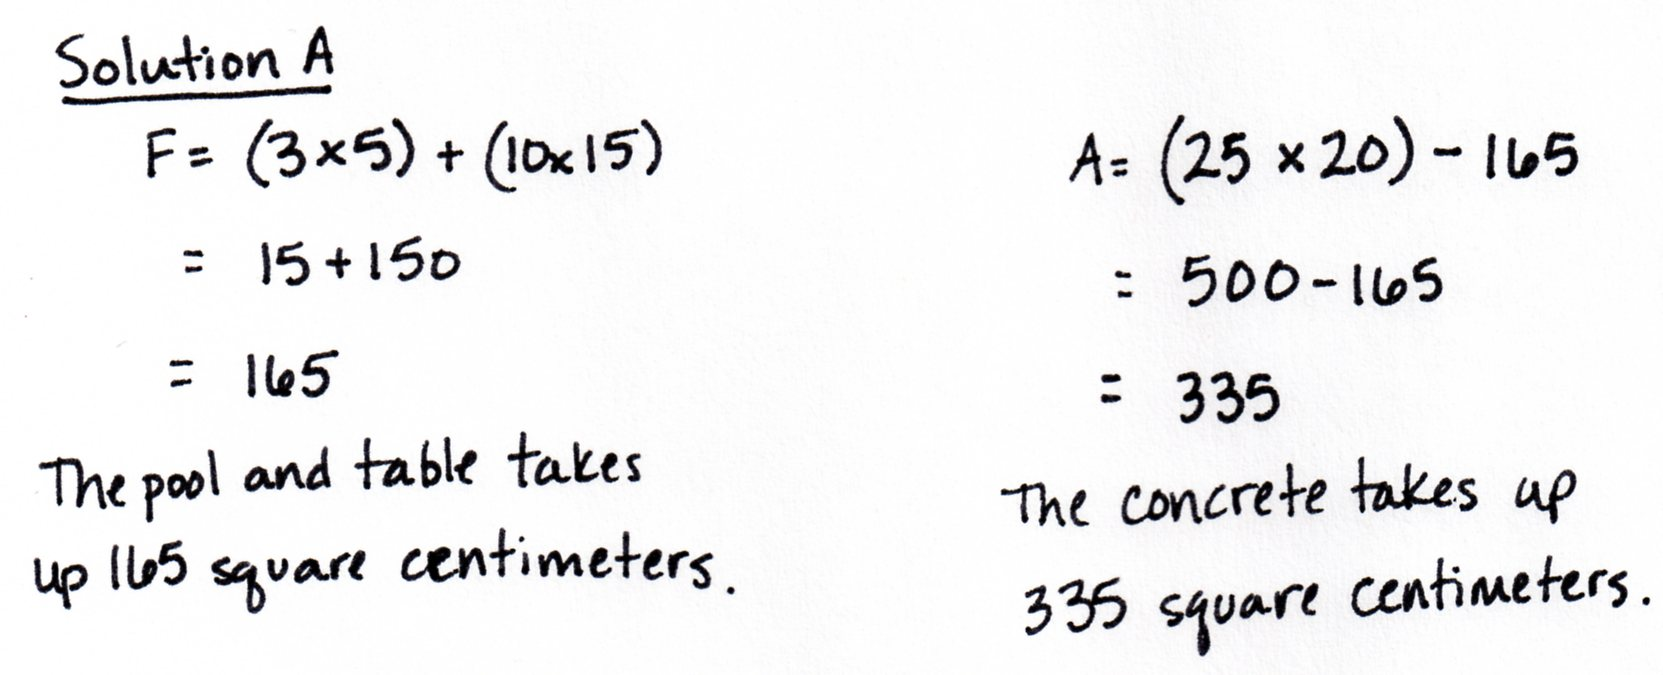 Solution A
F= (3×5) + (10×15)
= 15+150
= 165
The pool and table takes
up 165 square centimeters.
A= (25 ×20) - 165
= 500-165
= 335
The concrete takes up
335 square centimeters.